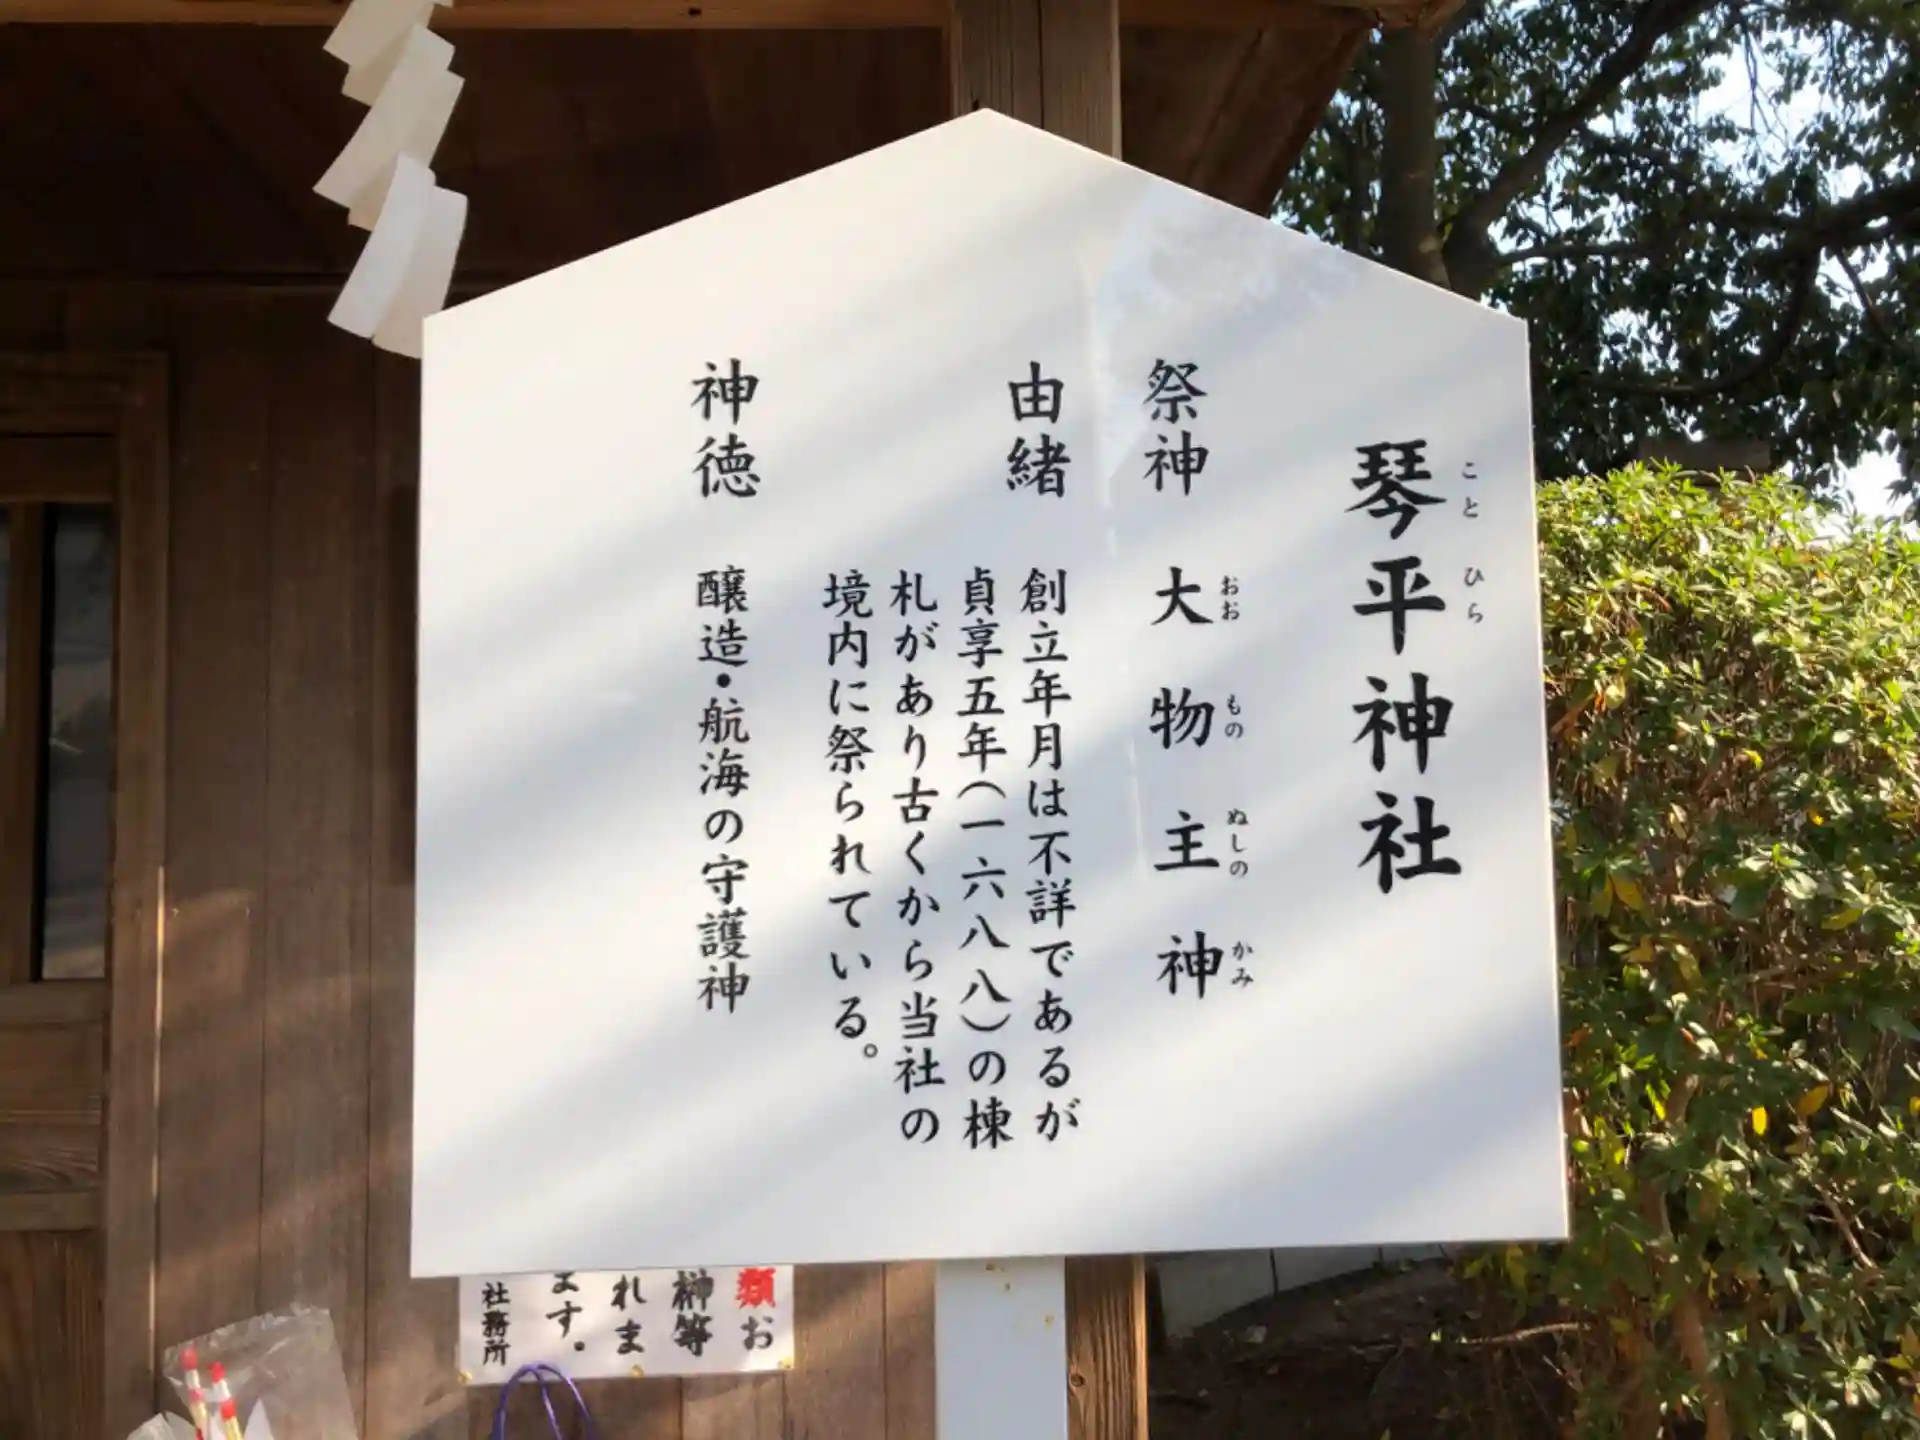 琴平神社
ことひら
祭神 大物主神
おおものぬしのかみ
由緒 創立年月は不詳であるが
貞享五年(一六八八)の棟
札があり古くから当社の
境内に祭られている。
神徳 醸造・航海の守護神
類お
榊等
れま
ます。
社務所